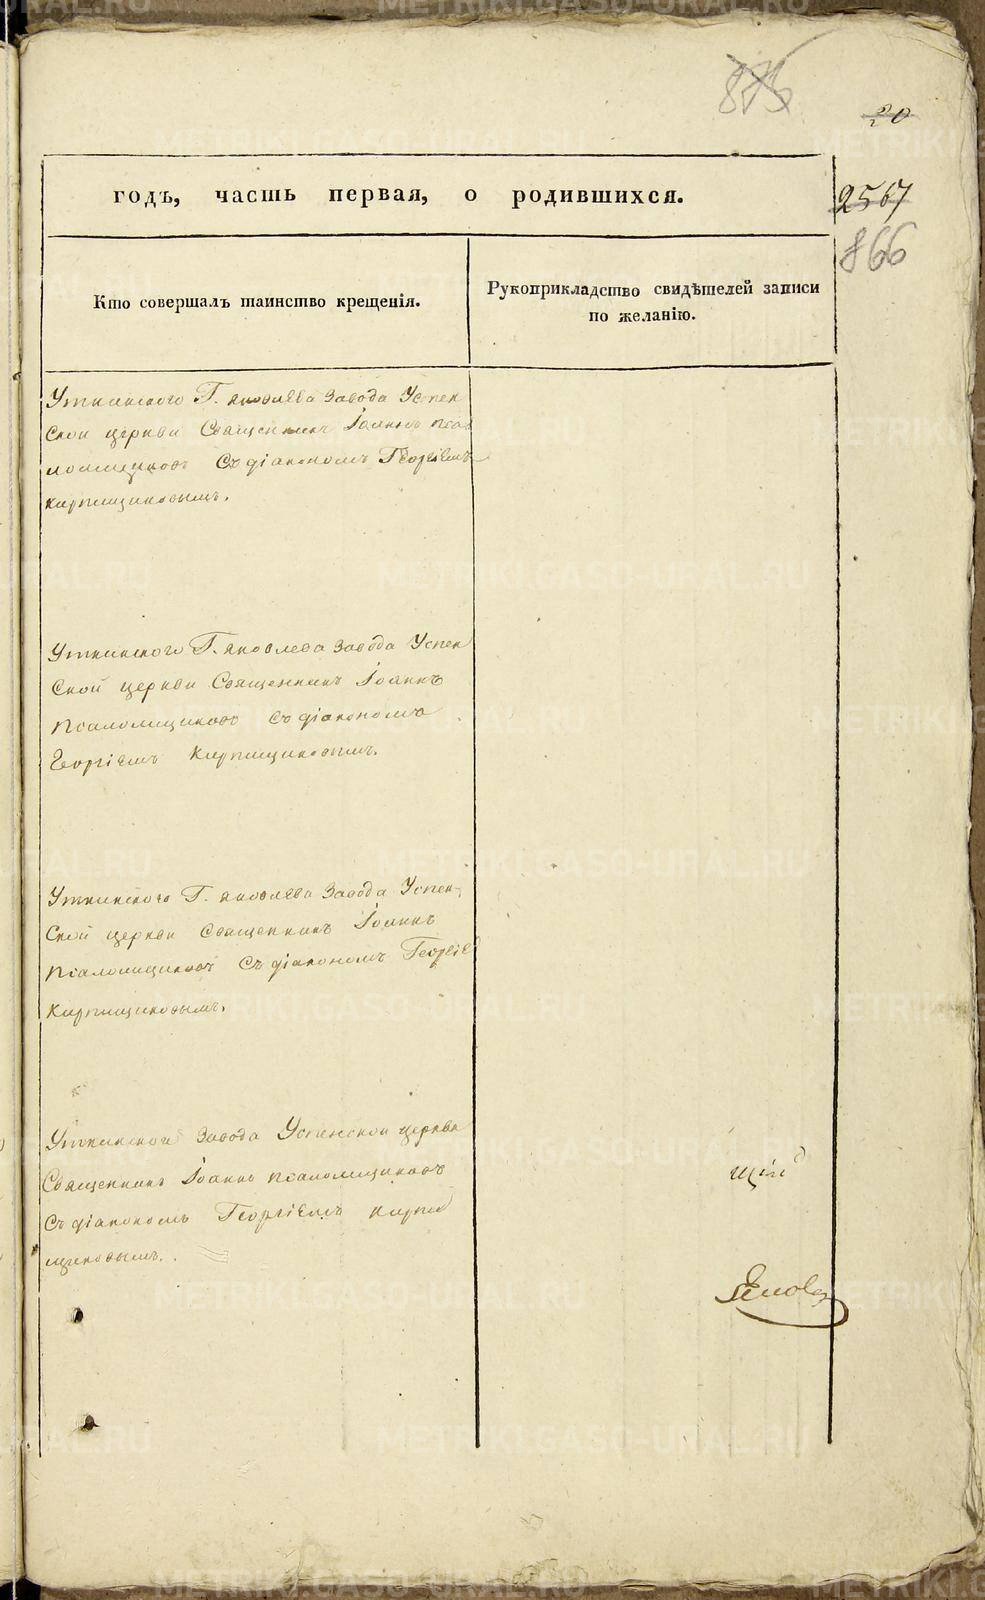 876
20
годъ, часть первая, о родившихся.
2567
866
Кто совершалъ таинство крещенія.
Рукоприкладство свидѣтелей записи
по желанію.
Уткинского Г. Яковлева Завода Успен
ской церкви Священникъ Іоаннъ Псал
мощиковъ Съ діакономъ Георгіемъ
Кирпищиковымъ.
Уткинского Г. Яковлева Завода Успен
ской церкви Священникъ Іоаннъ
Псаломщиковъ Съ діакономъ
Георгіемъ Кирпищиковымъ.
Уткинского Г. Яковлева Завода Успен-
ской церкви Священникъ Іоаннъ
Псаломщиковъ Съ діакономъ Георгіе
Кирпищиковымъ.
Уткинской Завода Успенской церкви
Священникъ Іоаннъ Псаломщиковъ
Съ діакономъ Георгіемъ Кирпи
щиковымъ.
METRIKI.GASO-URAL.RU